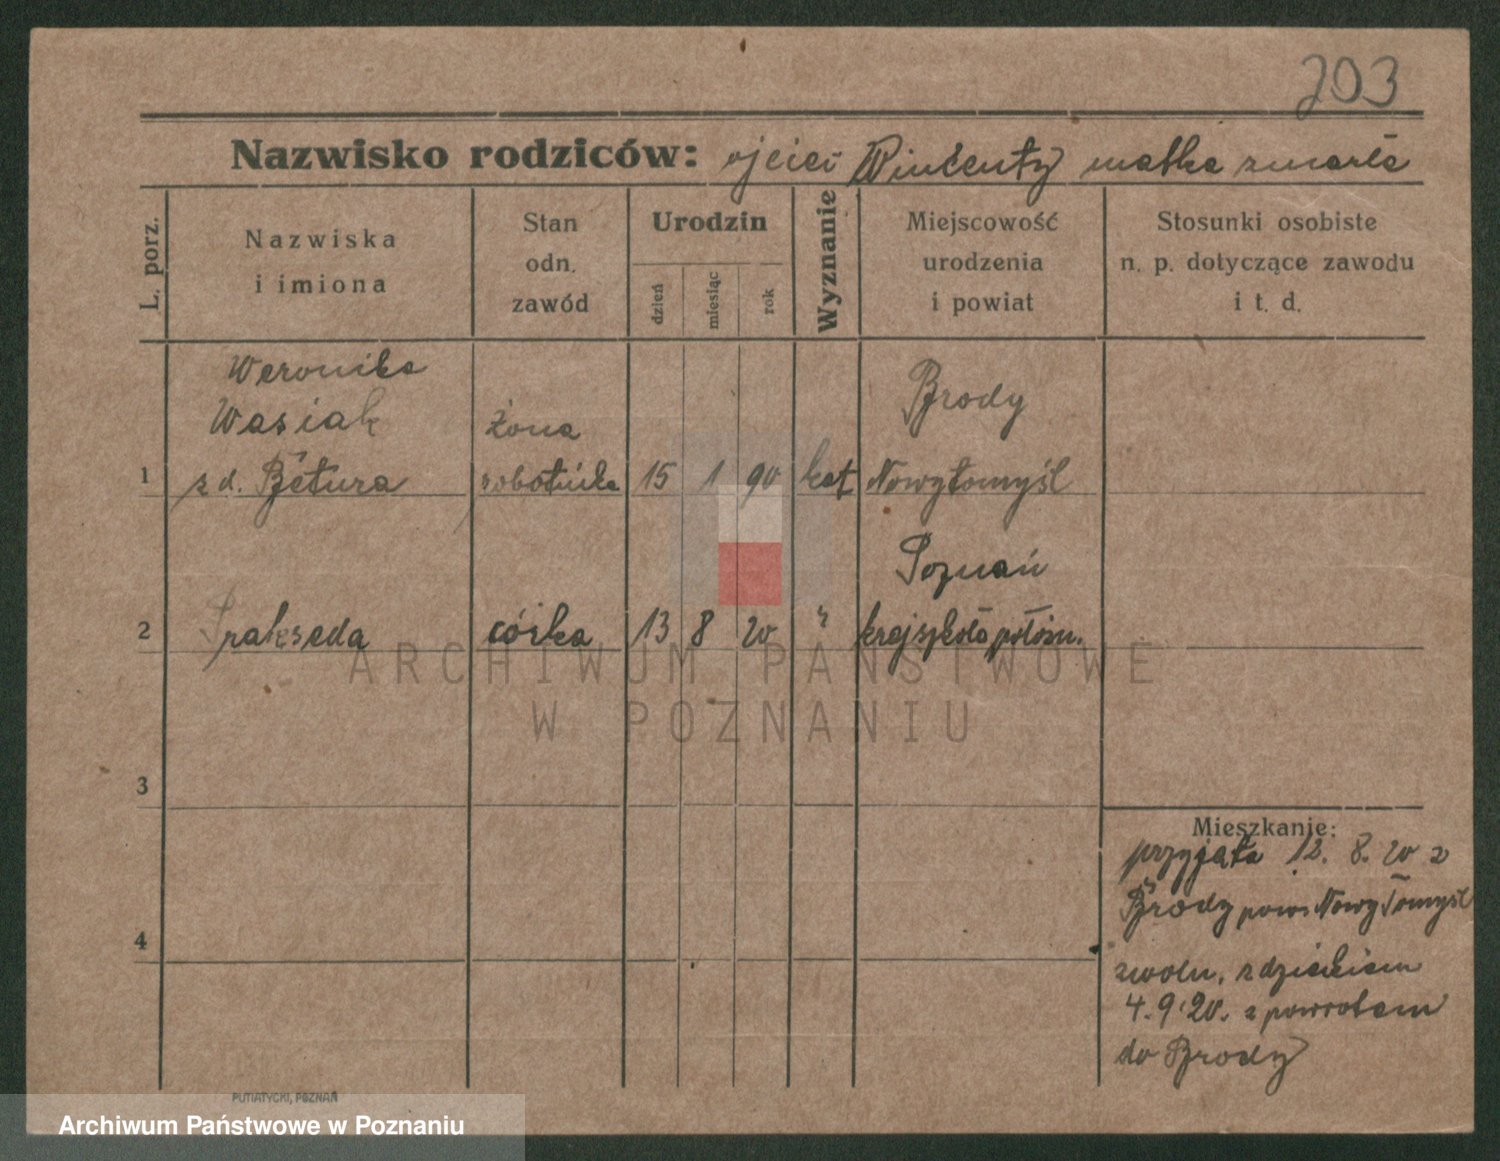 203
Nazwisko rodziców: ojciec Wincenty matka zmarła
L. porz.
Nazwiska
i imiona
Stan
odn.
zawód
Urodzin
dzień
miesiąc
rok
Wyznanie
Miejscowość
urodzenia
i powiat
Stosunki osobiste
n. p. dotyczące zawodu
i t. d.
Weronika
Wasiak
z d. Betura
1
żona
robotnika
15 1 90 kat
Brody
Nowytomyśl
2
Prakseda córka 13 8 20 "
Poznań
kraj szkoła położn.
3
4
Mieszkanie:
przyjęta 12. 8. 20 z
Brody pow. Nowy Tomyśl
zwoln. z dzieckiem
4. 9. 20. z powrotem
do Brody
PUTIATYCKI, POZNAŃ
ARCHIWUM PAŃSTWOWE
W POZNANIU
Archiwum Państwowe w Poznaniu